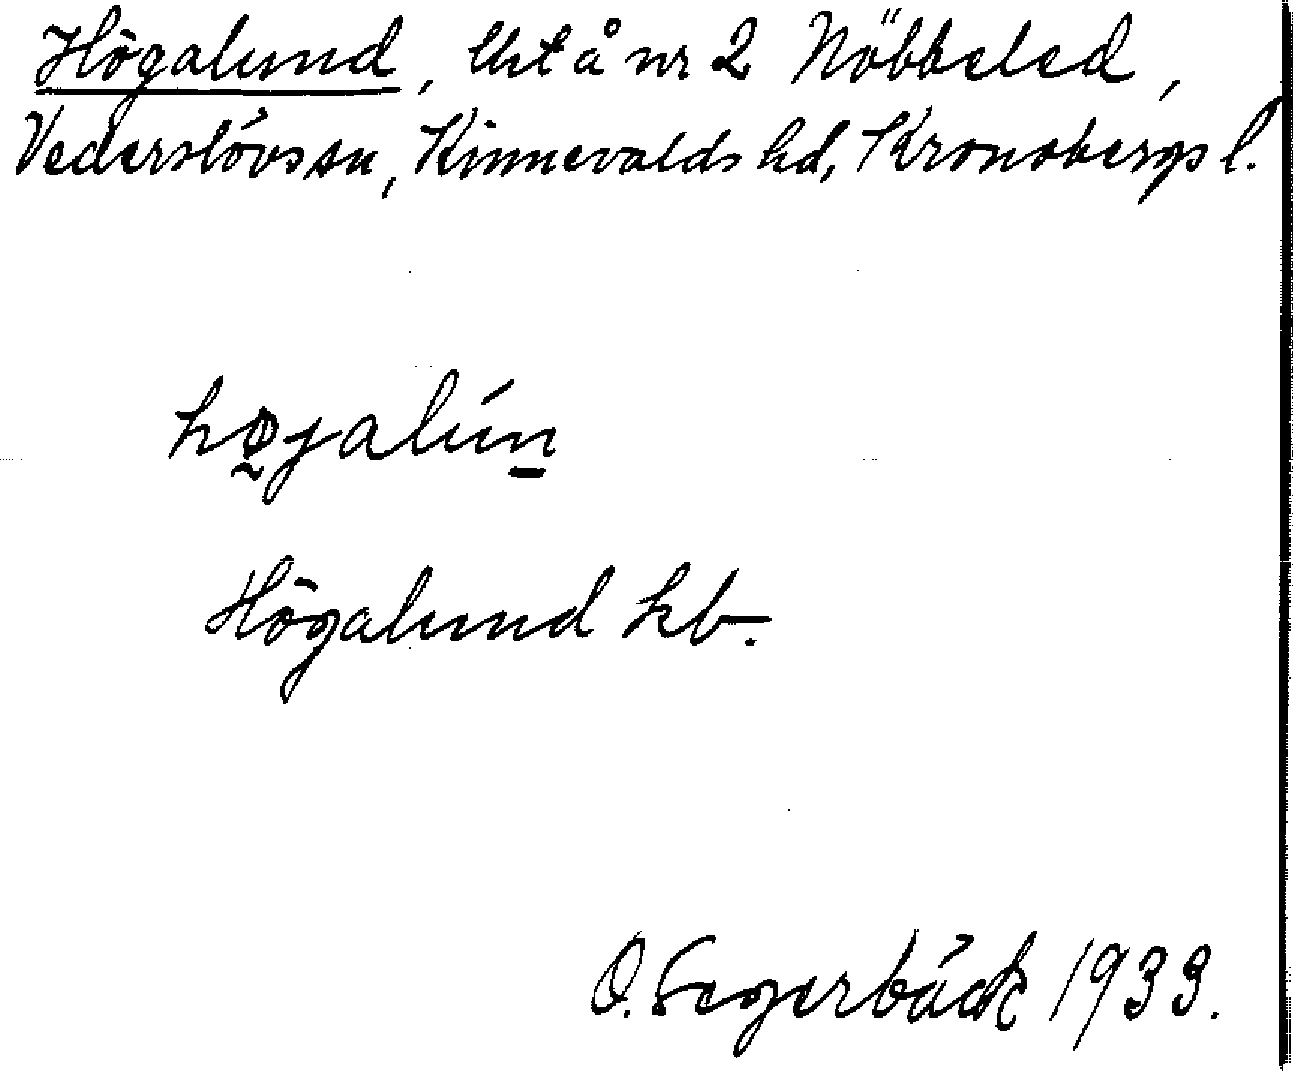 Högalund, lht å nr 2 Nöbbeled,
Vederslövs sn, Kinnevalds hd, Kronobergs l.
hø̰jalúṉ
Högalund kb.
O. Segerbäck 1933.